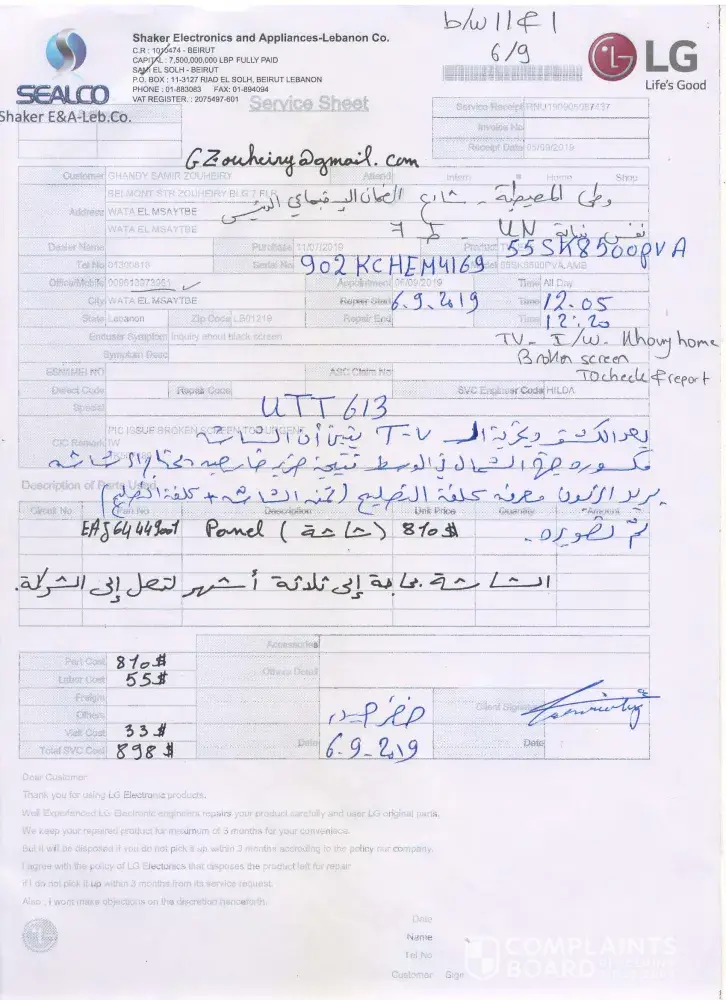 b/w 11 & 1
6/9
Shaker Electronics and Appliances-Lebanon Co.
C.R : 1010474 - BEIRUT
CAPITAL : 7,500,000,000 LBP FULLY PAID
SAMI EL SOLH - BEIRUT
P.O. BOX : 11-3127 RIAD EL SOLH, BEIRUT LEBANON
PHONE : 01-883083 FAX : 01-894094
VAT REGISTER. : 2075497-601
SEALCO
Shaker E&A-Leb.Co.
LG
Life's Good
Service Sheet
Service Receipt RNU190905087437
Invoice No
Receipt Date 05/09/2019
GZouheiry@gmail.com
Customer GHANDY SAMIR ZOUHEIRY Attend Intern Home Shop
BELMONT STR ZOUHEIRY BLG 7 FLR
Address WATA EL MSAYTBE
WATA EL MSAYTBE
وطى المصيطبة - شارع الضمان
نفس بناية UN ط 7
Dealer Name Purchase 11/07/2019 Product
55SK8500PVA
Tel No 01300818 Serial No 902KCHEM4169 55SK8500PVA.AMB
Office/Mobile Appointment 06/09/2019 Time All Day
City WATA EL MSAYTBE Repair Start 6.9.2019 Time 12.05
State Lebanon Zip Code LB01219 Repair End Time 12:20
Enduser Symptom Inquiry about black screen
TV - I/W. Khoury home
Symptom Desc
Broken screen
ESN/IMEI NO ASC Claim No
TO check & report
Defect Code Repair Code SVC Engineer Code HILDA
Special UTT 613
PIC ISSUE BROKEN SCREEN TOO URGENT
CIC Remark IW
بعد الكشف وتجربة الـ T-V تبين أن الشاشة
مكسورة جهة الشمال في الوسط نتيجة ضربة خارجية تحتاج الى شاشة
Description of Parts Used
يريد الزبون معرفة كلفة التصليح (ثمن الشاشة + كلفة التصليح)
Circuit No Part No Description Unit Price Quantity Amount
EAJ64449001 Panel (شاشة) 810$
تم تصويره.
الشاشة بحاجة إلى ثلاثة أشهر لتصل إلى الشركة.
Accessories
Part Cost 810$
Others Detail
Labor Cost 55$
Freight
Others
Client Signature
Visit Cost 33$
Total SVC Cost 898$
خضر حيدر
Date 6.9.2019
Date
Dear Customer
Thank you for using LG Electronic products.
Well Experienced LG Electronic engineers repairs your product carefully and user LG original parts.
We keep your repaired product for maximum of 3 months for your convenience.
But it will be disposed if you do not pick it up within 3 months according to the policy our company.
I agree with the policy of LG Electonics that disposes the product left for repair
If I do not pick it up within 3 months from its service request.
Also , I wont make objections on the discretion henceforth.
Date
Name
Tel No
Customer Sign
COMPLAINTS
BOARD